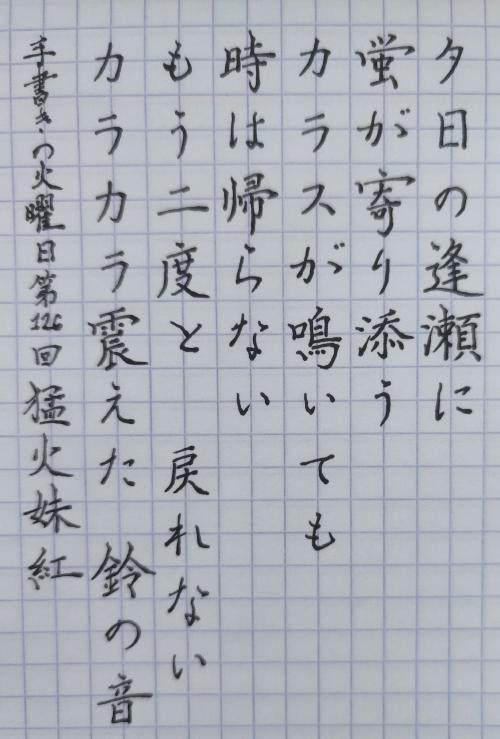 夕日の逢瀬に
蛍が寄り添う
カラスが鳴いても
時は帰らない
もう二度と 戻れない
カラカラ震えた 鈴の音
手書きの火曜日第126回 猛火妹紅